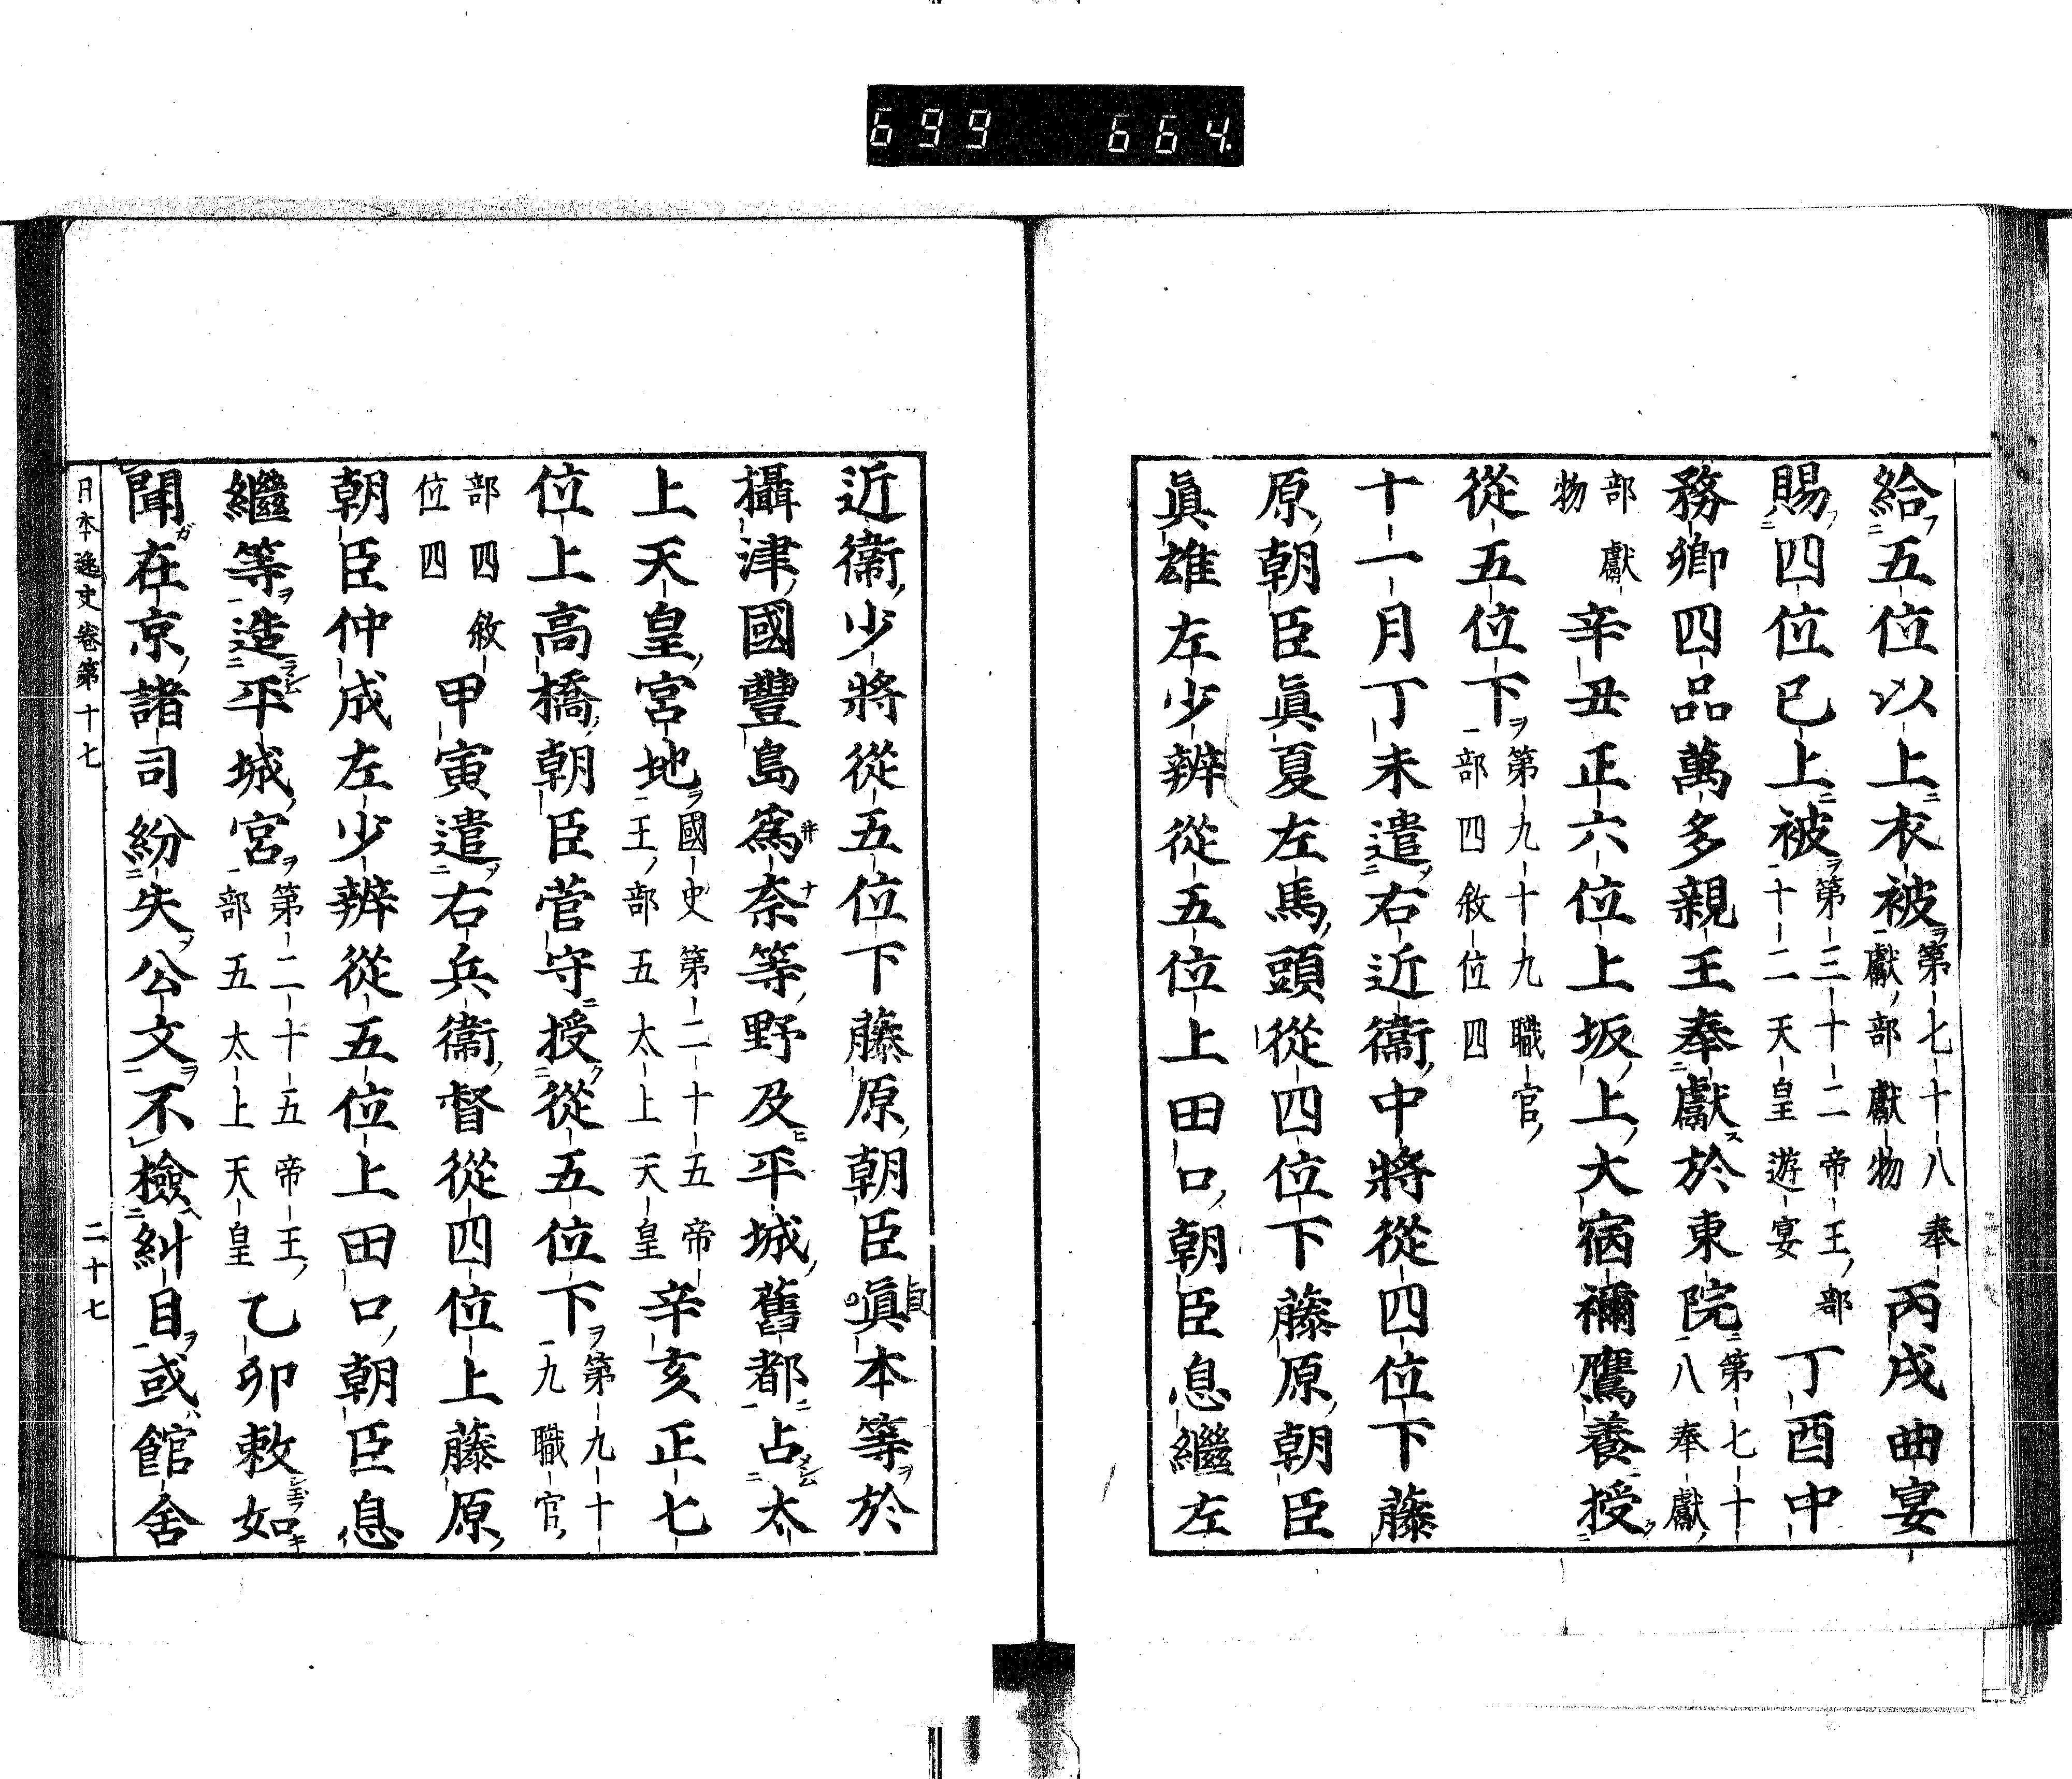 699 664.
給五位以上衣被第七十八奉獻部獻物丙戌曲宴
賜四位已上被第三十二帝王部十二天皇遊宴丁酉中
務卿四品萬多親王奉獻於東院第七十八奉獻
部獻物辛丑正六位上坂上大宿禰鷹養授
從五位下第九十九職官部四敘位四
十一月丁未遣右近衞中將從四位下藤
原朝臣眞夏左馬頭從四位下藤原朝臣
眞雄左少辨從五位上田口朝臣息繼左
近衞少將從五位下藤原朝臣眞本等於
攝津國豐島爲奈等野及平城舊都占太
上天皇宮地國史第二十五帝王部五太上天皇辛亥正七
位上高橋朝臣菅守授從五位下第九十九職官
部四敘位四甲寅遣右兵衞督從四位上藤原
朝臣仲成左少辨從五位上田口朝臣息
繼等造平城宮第二十五帝王部五太上天皇乙卯敕如
聞在京諸司紛失公文不檢糾自或館舍
日本逸史卷第十七 二十七